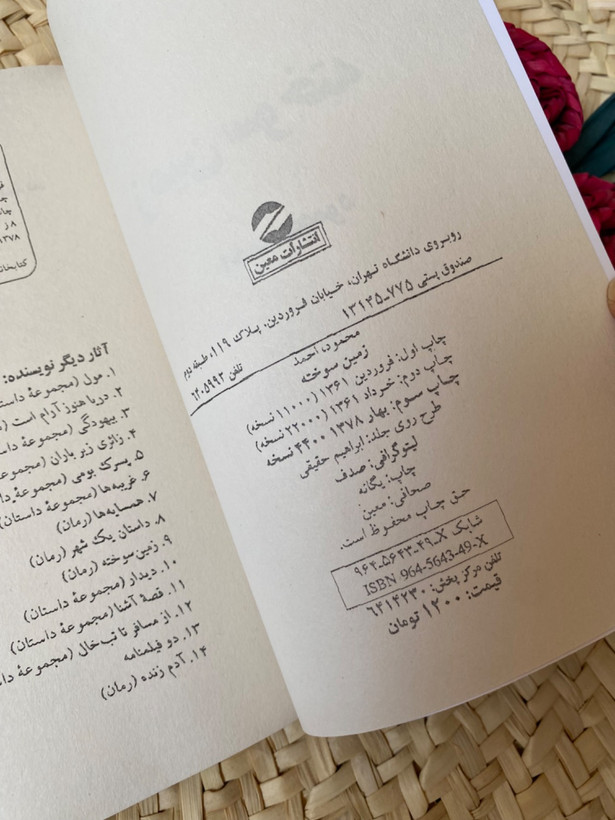 انتشارات معین
روبروی دانشگاه تهران، خیابان فروردین، پلاک ۱۱۹، طبقه دوم
صندوق پستی ۷۷۵-۱۳۱۴۵
تلفن ۶۴۰۵۹۹۳
محمود، احمد
زمین سوخته
چاپ اول: فروردین ۱۳۶۱ (۱۱۰۰۰ نسخه)
چاپ دوم: خرداد ۱۳۶۱ (۲۲۰۰۰ نسخه)
چاپ سوم: بهار ۱۳۷۸ ۴۴۰۰ نسخه
طرح روی جلد: ابراهیم حقیقی
لیتوگرافی: صدف
چاپ: یگانه
صحافی: معین
حق چاپ محفوظ است.
شابک X-۴۹-۵۶۴۳-۹۶۴
ISBN 964-5643-49-X
تلفن مرکز پخش: ۶۴۱۴۲۳۰
قیمت: ۱۲۰۰ تومان
۱۳۷۸
کتابخانه
آثار دیگر نویسنده:
۱. مول (مجموعهٔ داستان
۲. دریا هنوز آرام است
۳. بیهودگی (مجموعهٔ داس
۴. زائری زیر باران (مجموعه
۵. پسرک بومی (مجموعهٔ دا
۶. غریبه‌ها (مجموعهٔ داستان)
۷. همسایه‌ها (رمان)
۸. داستان یک شهر (رمان)
۹. زمین سوخته (رمان)
۱۰. دیدار (مجموعهٔ داستان)
۱۱. قصهٔ آشنا (مجموعهٔ داستان)
۱۲. از مسافر تا تب‌خال (مجموعهٔ داس
۱۳. دو فیلمنامه
۱۴. آدم زنده (رمان)